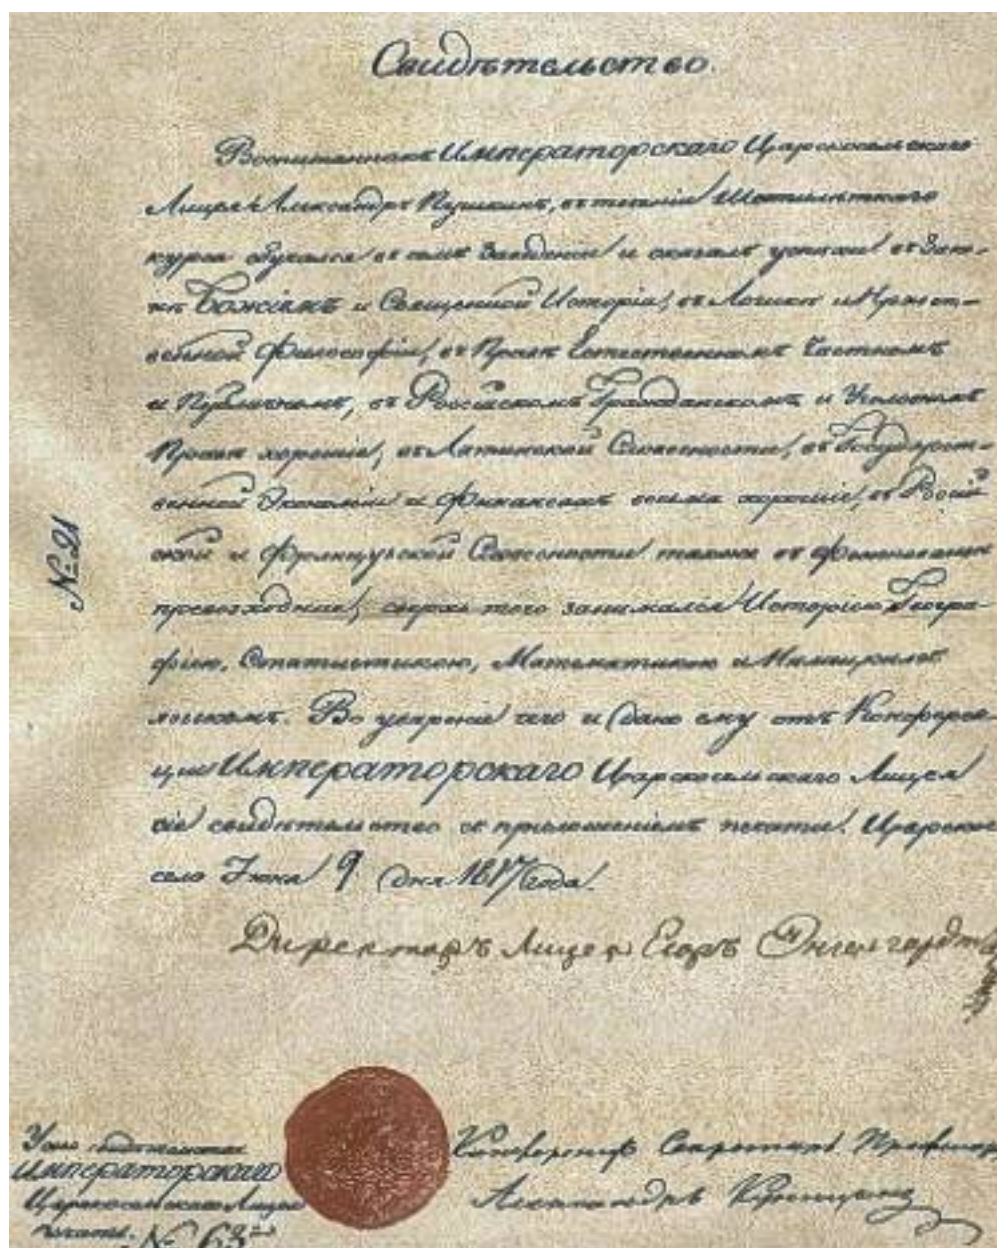 Свидѣтельство.
Воспитанникъ Императорскаго Царскосельскаго
Лицея Александръ Пушкинъ, въ теченіи Шестилѣтняго
курса обучался въ семъ Заведеніи и оказалъ успѣхи въ Зако-
нѣ Божіемъ и Священной Исторіи, въ Логикѣ и Нравст-
венной Философіи, въ Правѣ Естественномъ Частномъ
и Публичномъ, въ Россійскомъ Гражданскомъ и Уголовномъ
Правѣ хорошіе, въ Латинской Словесности, въ Государст-
венной Экономіи и Финансахъ весьма хорошіе, въ Россій
ской и Французской Словесности также въ Фехтованіи
превосходные, сверхъ того занимался Исторіею, Геогра-
фіею, Статистикою, Математикою и Нѣмецкимъ
языкомъ. Во увѣреніе чего и дано ему отъ Конферен-
ціи Императорскаго Царскосельскаго Лицея
сіе свидѣтельство съ приложеніемъ печати. Царское
село Іюня 9 дня 1817 года.
Директоръ Лицея Егоръ Энгельгардтъ
№ 21
Императорскаго
Царскосельскаго Лицея
печати. № 63
Конференцъ Секретарь Профессоръ
Александръ Куницынъ